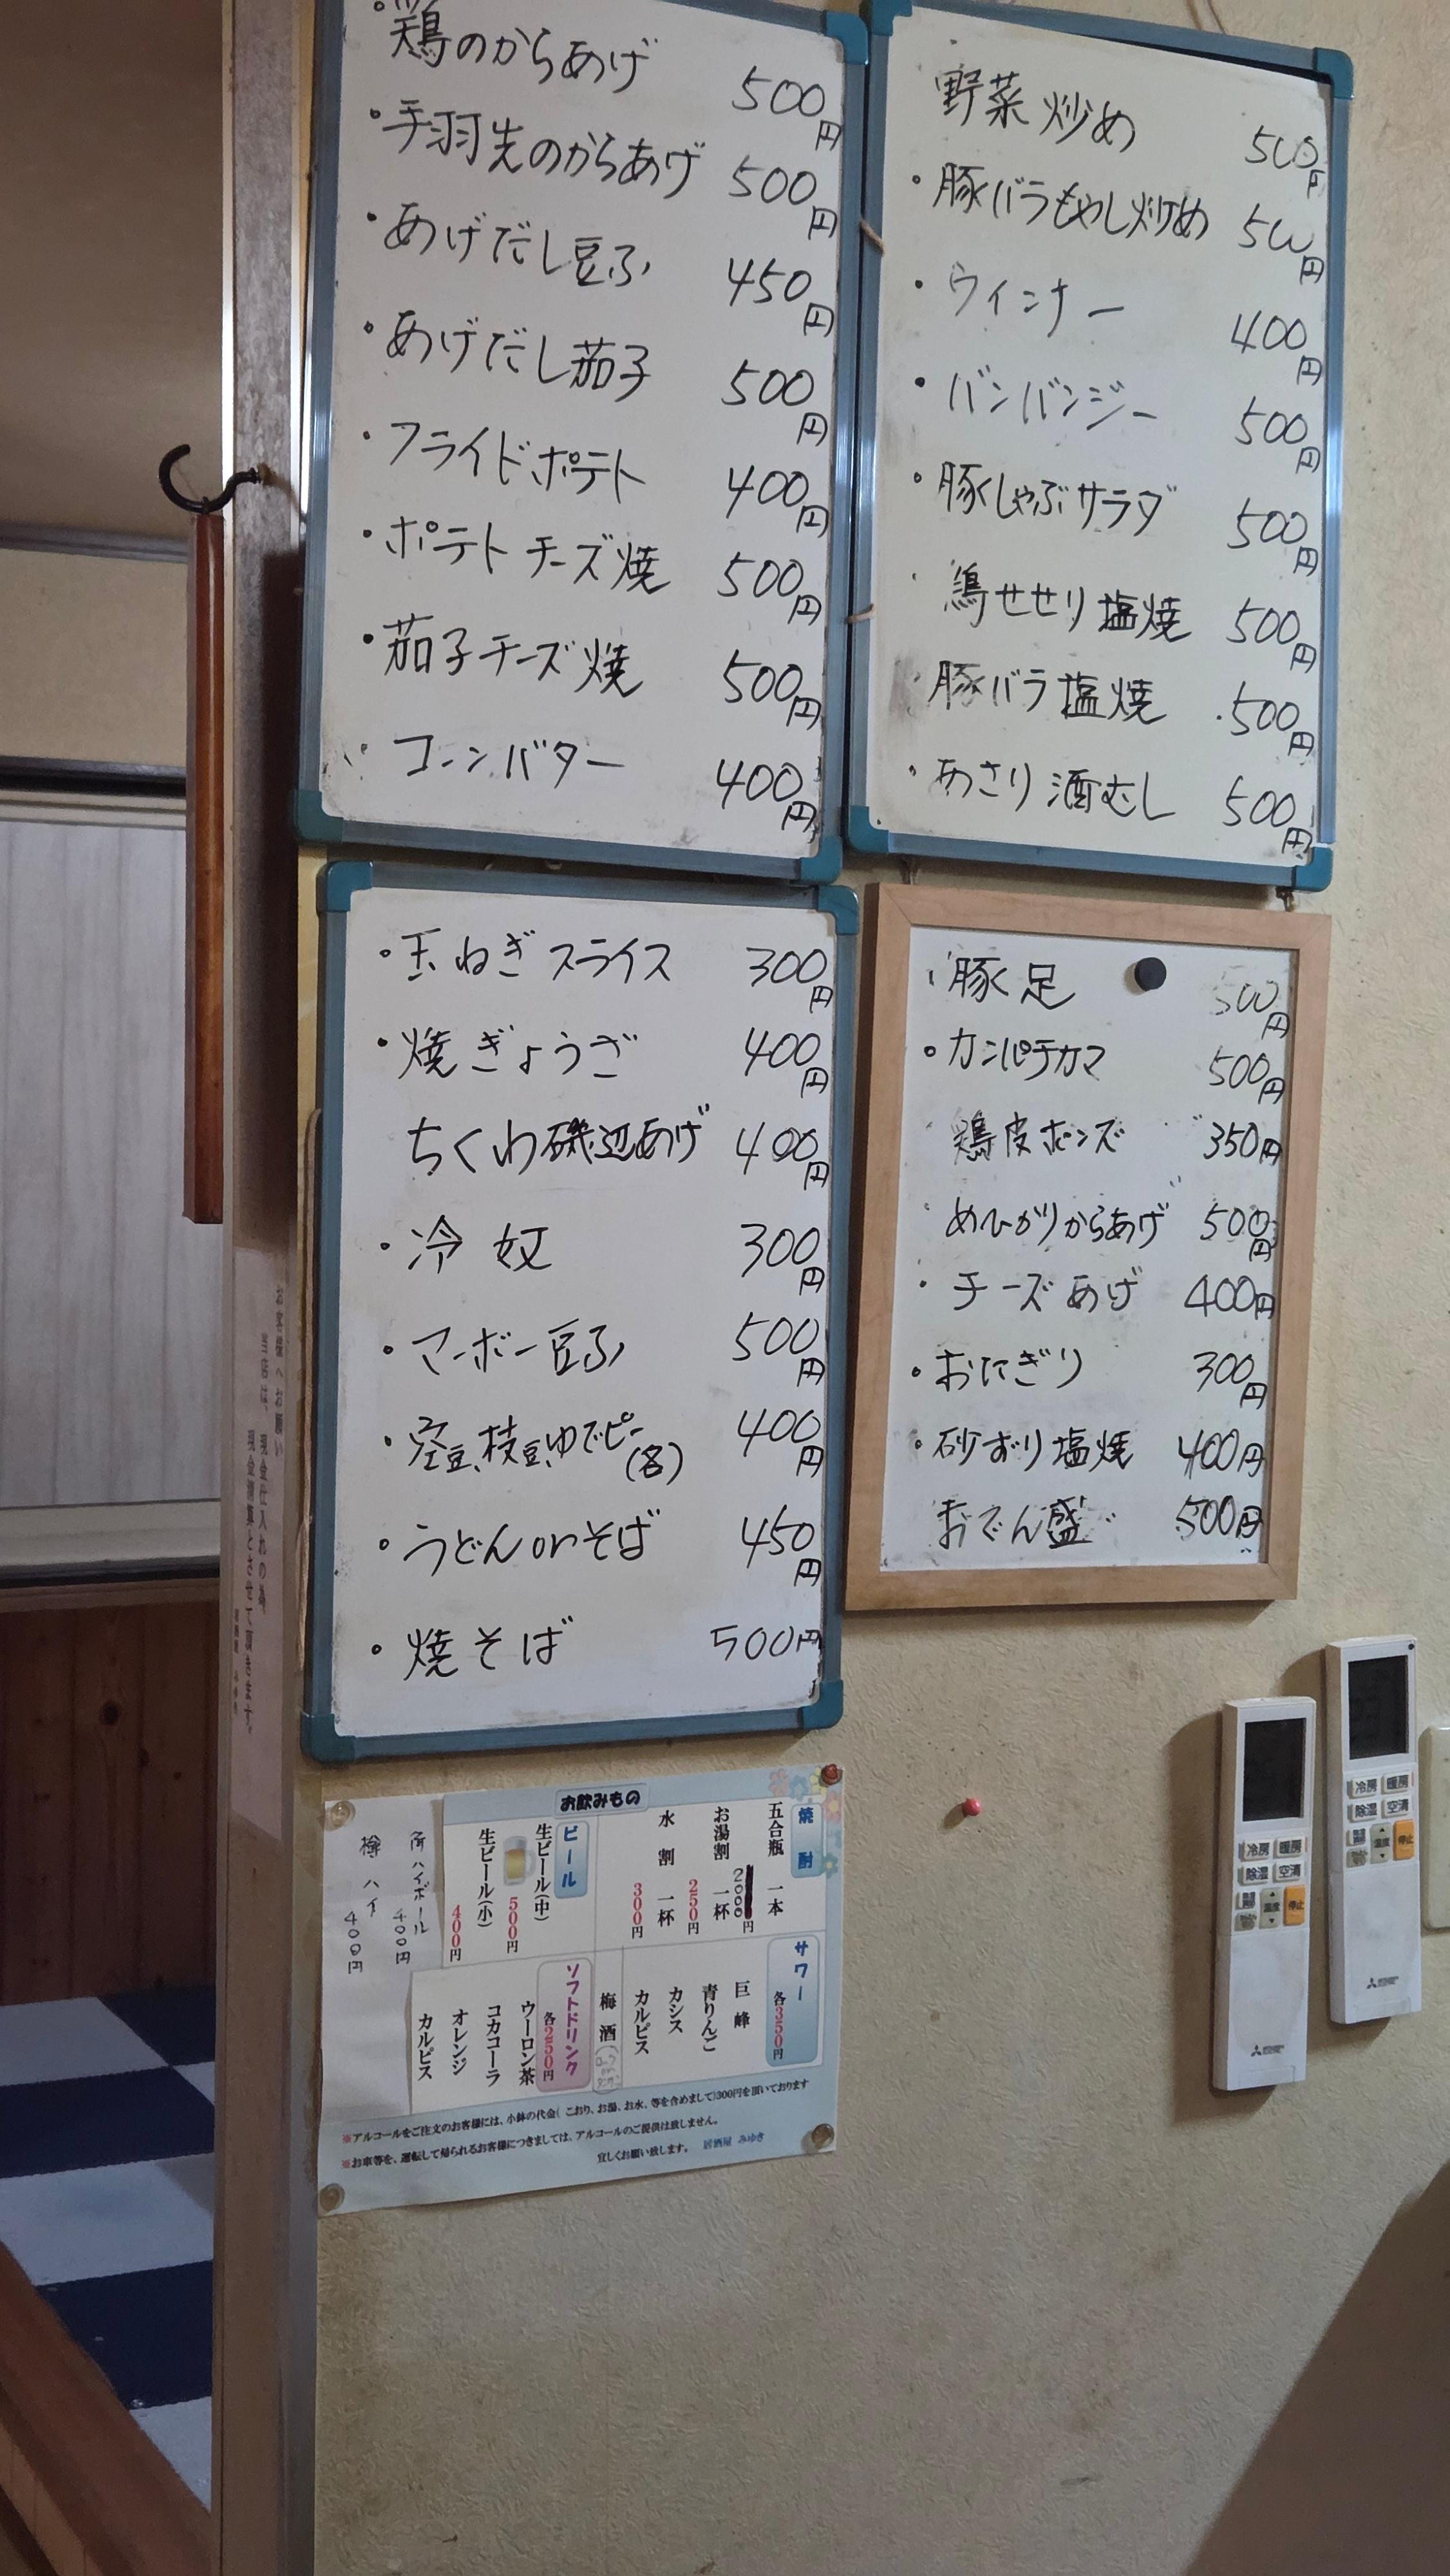 ・鶏のからあげ 500円
・手羽先のからあげ 500円
・あげだし豆ふ 450円
・あげだし茄子 500円
・フライドポテト 400円
・ポテトチーズ焼 500円
・茄子チーズ焼 500円
・コーンバター 400円
野菜炒め 500円
・豚バラもやし炒め 500円
・ウインナー 400円
・バンバンジー 500円
・豚しゃぶサラダ 500円
・鶏せせり塩焼 500円
・豚バラ塩焼 500円
・あさり酒むし 500円
・玉ねぎスライス 300円
・焼ぎょうざ 400円
ちくわ磯辺あげ 400円
・冷奴 300円
・マーボー豆ふ 500円
・空豆、枝豆、ゆでピー(各) 400円
・うどんorそば 450円
・焼そば 500円
・豚足 500円
・カンパチカマ 500円
鶏皮ポンズ 350円
・めひかりからあげ 500円
・チーズあげ 400円
・おにぎり 300円
・砂ずり塩焼 400円
おでん盛 500円
お客様へお願い
当店は、現金仕入れの為、
現金清算とさせて頂きます。
お飲みもの
焼酎
五合瓶 一本 2000円
お湯割 一杯 250円
水割 一杯 300円
ビール
生ビール(中) 500円
生ビール(小) 400円
角ハイボール 400円
樽ハイ 400円
サワー 各350円
巨峰
青りんご
カシス
カルピス
梅酒
ソフトドリンク 各250円
ウーロン茶
コカコーラ
オレンジ
カルピス
※アルコールをご注文のお客様には、小鉢の代金(こおり、お湯、お水、等を含めまして)300円を頂いております
※お車等を、運転して帰られるお客様につきましては、アルコールのご提供は致しません。
宜しくお願い致します。 居酒屋 みゆき
冷房 暖房
除湿 空清
温度 停止
冷房 暖房
除湿 空清
温度 停止